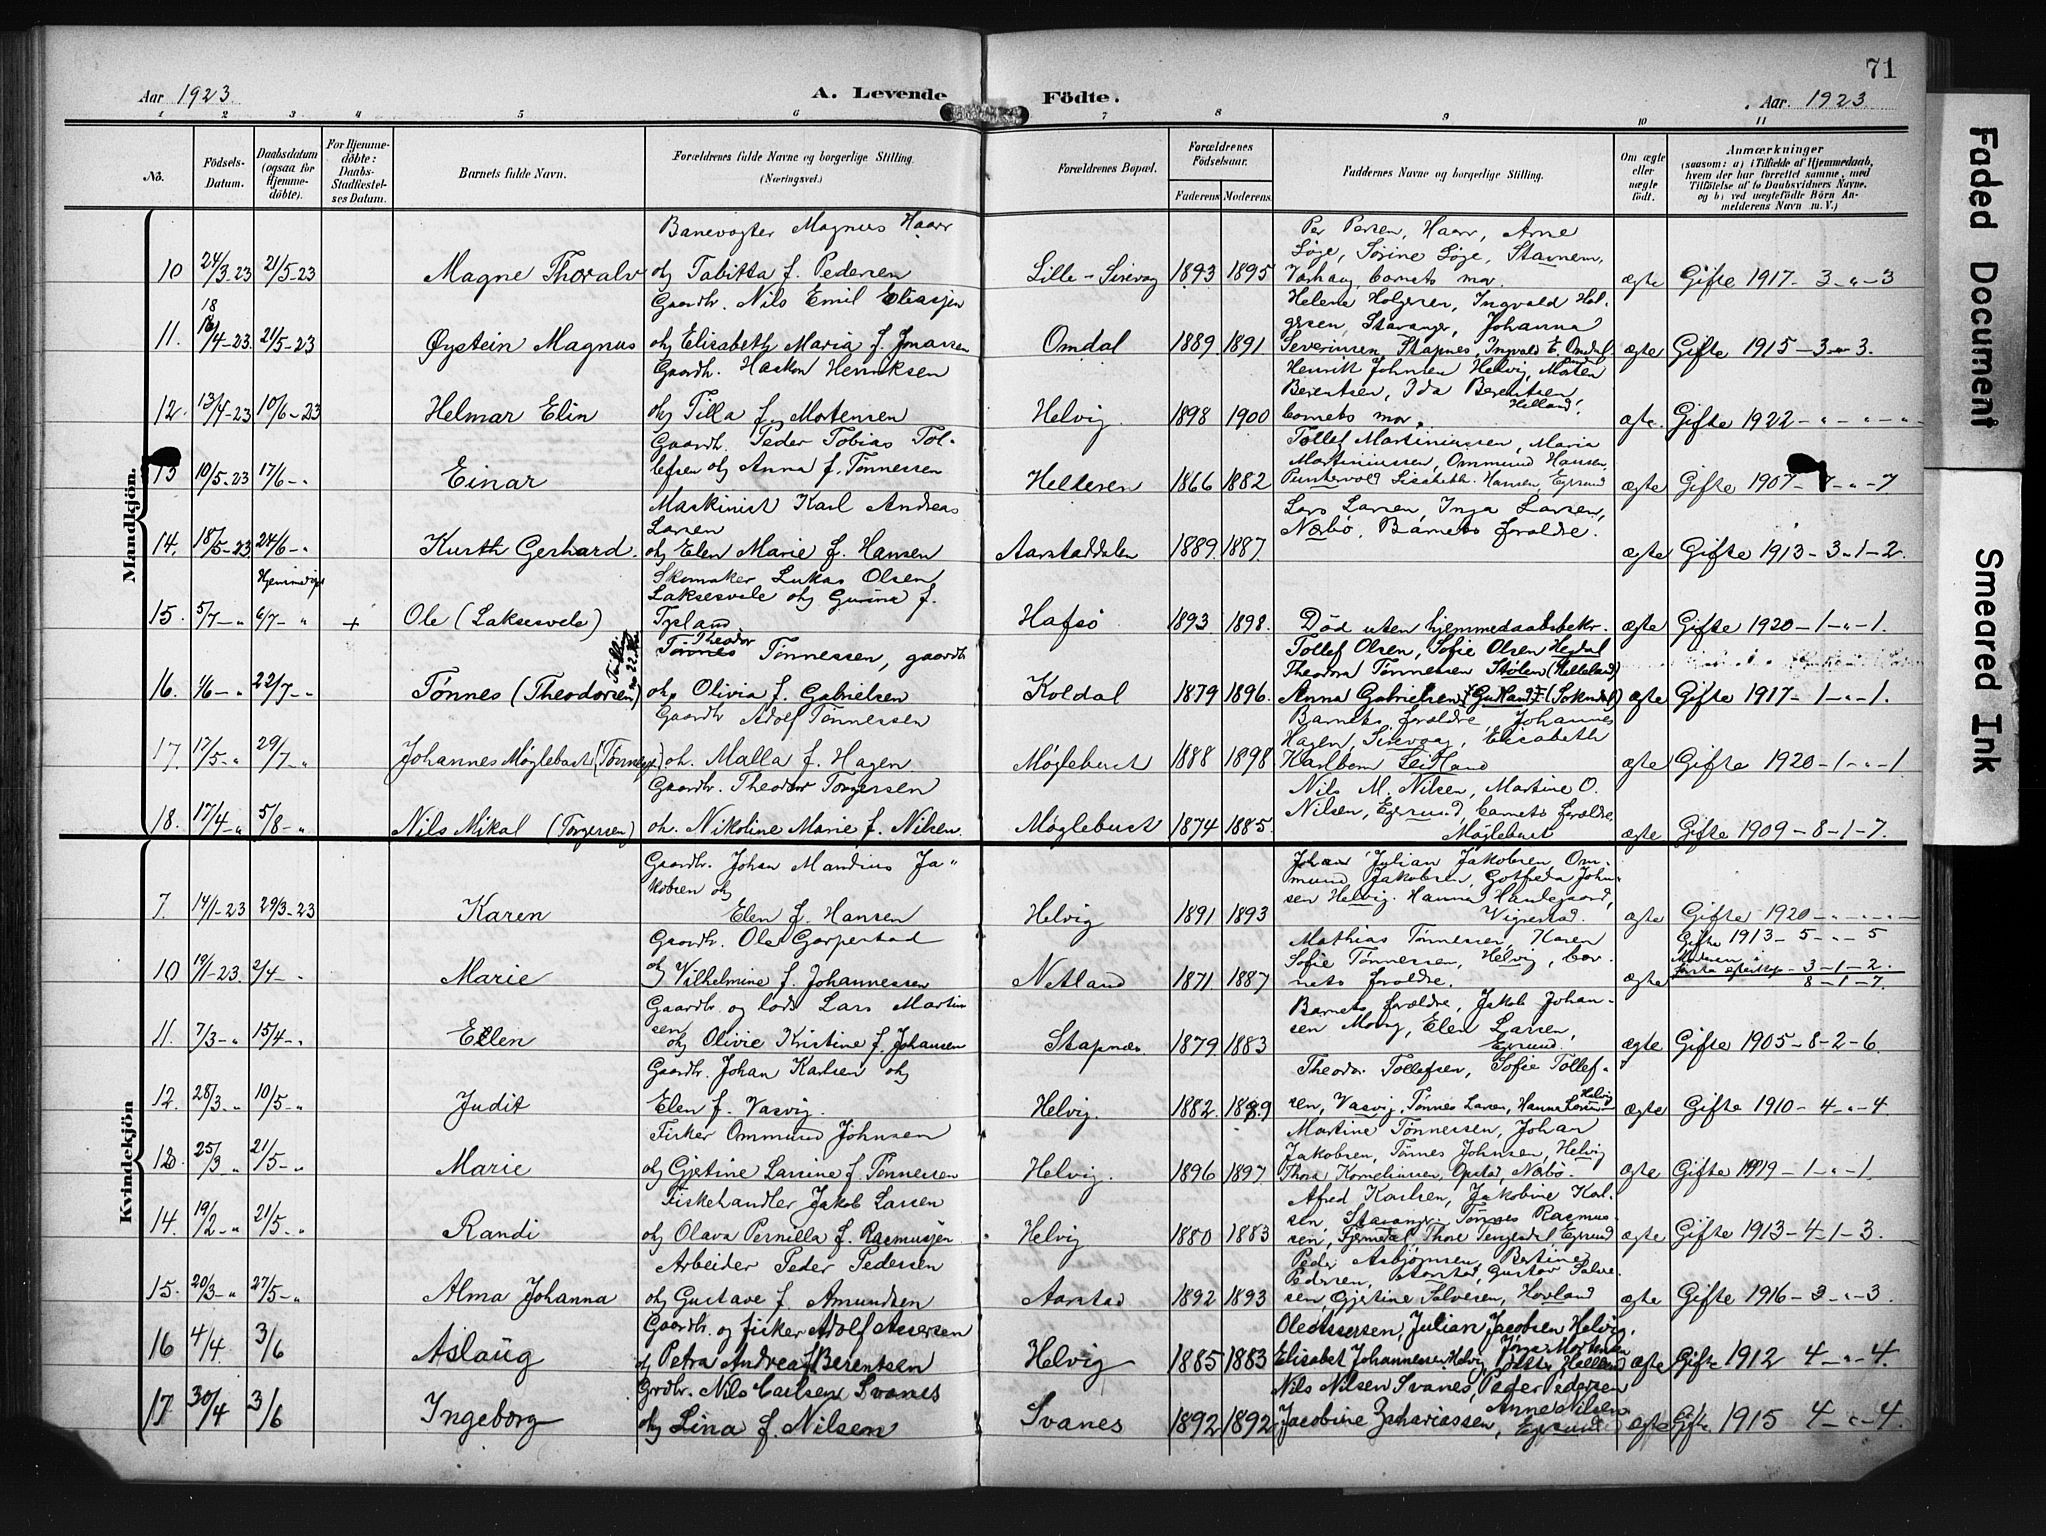 71
Aar 1923. A. Levende Födte. Aar. 1923
1 2 3 4 5 6 7 8 9 10 11
No. Födsels-Datum. Daabsdatum (ogsaa for Hjemmedöbte). For Hjemmedöbte: Daabs-Stadfæstelses Datum. Barnets fulde Navn. Forældrenes fulde Navne og borgerlige Stilling. (Næringsvei.) Forældrenes Bopæl. Forældrenes Födselsaar. Faderens Moderens Faddernes Navne og borgerlige Stilling. Om ægte eller uægte födt. Anmærkninger (saasom: a) i Tilfælde af Hjemmedaab, hvem der har forrettet samme, med Tilföielse af to Daabsvidners Navne, og b) ved uægtefödte Börn Anmelderens Navn m. V.)
Mandkjön.
Banevogter Magnus Haar Per Persen, Haar, Arne
Søge, Sørine Søge, Stavnem,
10 24/3-23 21/5-23 Magne Thoralv og Tabitta f. Pedersen Lille-Sirevag 1893 1895 Varhaug, barnets mor. ægte Gifte 1917-3-"-3
Gaardbr. Nils Emil Eliassen Helene Holgersen, Ingvald Hol-
gersen, Stavanger, Johanna
11. 18/4-23. 21/5-23 Øystein Magnus og Elisabeth Maria f. Jonassen Omdal 1889. 1891. Severinsen, Stapnes, Ingvald E. Omdal. ægte Gifte 1915-3-"-3.
Gaardbr. Haakon Henriksen Henrik Johnsen Helvig, Morten
Berentsen, Ida Berentsen Helland,
12. 13/4-23 10/6-23 Helmar Elin og Tilla f. Mortensen Helvig. 1898 1900 barnets mor. ægte. Gifte 1922-"-"-"
Gaardbr. Peder Tobias Tol- Tollef Martiniussen, Maria
Martiniussen, Ommund Hansen,
13 10/5-23 17/6-" Einar lefsen og Anna f. Tønnessen Helleren 1866 1882 Puntervold Lisabeth Hansen, Egrsund ægte Gifte 1907-7-"-7
Maskinist Karl Andreas Lars Larsen, Inga Larsen,
Larsen Nærbø. Barnets forældre.
14. 18/5-23 24/6-" Kurth Gerhard. og Elen Marie f. Hansen Aarstaddalen 1889. 1887. ægte Gifte 1913-3-1-2.
Hjemmedøpt Skomaker Lukas Olsen
Laksesvele og Gurina f.
15. 5/7-" 6/7-" + Ole (Laksesvele) Tysland Hafsø 1893 1898. Død uten hjemmedaabsbekr. ægte Gifte 1920-1-"-1.
Theodor
Tønnes Tønnessen, gaardbr Tollef Olsen, Sofie Olsen Hegdal
Theodora Tønnessen Stølen (Helleland)
16. 1/6-" 22/7-" Tønnes (Theodorsen) og Olivia f. Gabrielsen Koldal 1879 1896. Anna Gabrielsen (Sokndal) ægte Gifte 1917-1-"-1.
Gaardbr Adolf Tønnessen Barnets forældre, Johannes
Hagen, Sirevaag, Elisabeth
17. 17/5-" 29/7-" Johannes Møglebust og. Malla f. Hagen. Møglebust 1888 1898 Karlbom Leidland ægte Gifte 1920-1-"-1.
Gaardbr. Theodor Torgersen Nils M. Nilsen, Martine O.
Nilsen, Egersund, barnets forældre,
18. 17/4-" 5/8-" Nils Mikal (Torgersen) og. Nikoline Marie f. Nilsen. Møglebust 1874 1885. Møglebust ægte Gifte 1909-8-1-7.
Kvindekjön
Gaardbr. Johan Mandius Ja- Johan Julian Jakobsen, Om-
kobsen og mund Jakobsen, Gotfreda John-
sen Helvig. Hanna Handegaard,
7. 14/1-23 29/3-23 Karen Elen f. Hansen Helvig 1891 1893 Vigrestad. ægte Gifte 1920-"-"-"
Gaardbr. Ole Gaperstad Mathias Tønnessen, Karen Gifte 1913-5-"-5
Sofie Tønnessen, Helvig, bar-
10 19/1-23. 2/4-" Marie og Vilhelmine f. Johannessen Netland 1871 1887 nets forældre. ægte 3-1-2.
8-1-7.
Gaardbr. og lods Lars Martin Barnets forældre, Jakob Johan-
11. 7/3-" 15/4-" Ellen sen og Olivie Kristine f. Johansen Stapnes. 1879. 1883 sen Mong, Elen Larsen, Egrsund. ægte Gifte 1905-8-2-6.
Gaardbr. Johan Karlsen og Theodor Tollefsen, Sofie Tollef-
12. 28/3-" 10/5-" Judit Elen f. Vasvig. Helvig. 1882. 1889 sen, Vasvig, Tønnes Larsen, Hanna Larsen Helvig ægte Gifte 1910-4-"-4
Fisker Ommund Johnsen Martine Tønnessen, Johan
Jakobsen, Tønnes Johnsen, Helvig
13. 25/3-" 21/5-" Marie og Gjetine Larsine f. Tønnessen Helvig. 1896 1897. Thora Korneliussen, Opstad, Nærbø. ægte Gifte 1919-1-"-1.
Fiskehandler Jakob Larsen Alfred Karlsen, Jakobine Karl-
sen, Stavanger. Tønnes Rasmus-
14. 19/2-" 21/5-" Randi og Olava Pernilla f. Rasmussen Helvig 1880 1883 ægte Gifte 1913-4-1-3.
Arbeider Peder Pedersen Peder Asbjørnsen, Bertine
Pedersen, Aarstad, Gustav Salve-
15. 20/3-" 27/5-" Alma Johanna og Gustave f. Amundsen Aarstad 1892 1893 sen, Gjetine Salvesen, Hovland ægte Gifte 1916-3-"-3.
Gaardbr. og fisker Adolf Assersen Ole Assersen, Julian Jacobsen Helvig,
16 4/4. 3/6 Aslaug og Petra Andrea f Berentsen Helvig 1885 1883 Elisabet Johannessen Helvig, Inga Mortensen Helland ægte Gifte 1912 4-"-4.
Grdbr. Nils Carlsen Svanes Nils Nilsen Svanes, Peder Pedersen
17 30/4 3/6 Ingeborg og Lina f. Nilsen Svanes 1892 1892 Jacobine Zahariassen, Anne Nilsen Egrsund ægte Gifte 1915 4-"-4.
Faded Document
Smeared Ink